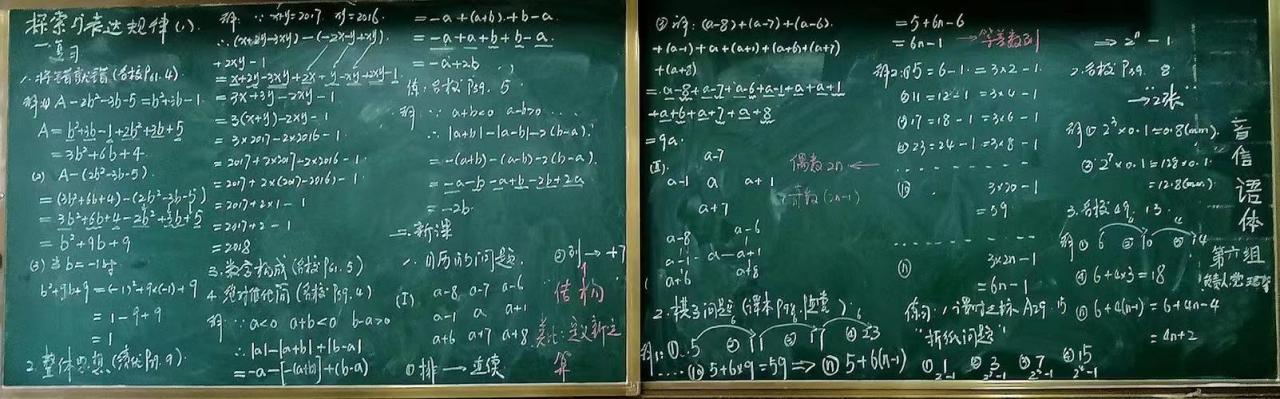 探索与表达规律(1).
一.复习
1.将错就错(名校P61.4)
解:(1) A-2b²-3b-5=b²+3b-1
A=b²+3b-1+2b²+3b+5
=3b²+6b+4.
(2) A-(2b²-3b-5).
=(3b²+6b+4)-(2b²-3b-5)
=3b²+6b+4-2b²+3b+5
=b²+9b+9
(3) 当b=-1时
b²+9b+9=(-1)²+9×(-1)+9
=1-9+9
=1
2.整体思想
解: ∵x+y=2017 xy=2016.
∴(x+2y-3xy)-(-2x-y+xy)
+2xy-1
=x+2y-3xy+2x+y-xy+2xy-1
=3x+3y-2xy-1
=3(x+y)-2xy-1
=3×2017-2×2016-1
=2017+2×2017-2×2016-1
=2017+2×(2017-2016)-1
=2017+2×1-1
=2017+2-1
=2018
3.数字构成(名校P61.5)
4.绝对值化简(名校P59.4)
解: ∵a<0 a+b<0 b-a>0
∴|a|-|a+b|+|b-a|
=-a-[-(a+b)]+(b-a)
=-a+(a+b)+b-a
=-a+a+b+b-a.
=-a+2b
练:名校P59.5
解: ∵a+b<0 a-b>0
∴|a+b|-|a-b|-2(b-a).
=-(a+b)-(a-b)-2(b-a).
=-a-b-a+b-2b+2a
=-2b.
二.新课
1.日历的问题. ②列→+7
(Ⅰ) a-8 a-7 a-6
a-1 a a+1
a+6 a+7 a+8
①排→连续
结构
类比:定义新运算
③解:(a-8)+(a-7)+(a-6)
+(a-1)+a+(a+1)+(a+6)+(a+7)
+(a+8)
=a-8+a-7+a-6+a-1+a+a+1
+a+6+a+7+a+8
=9a.
(Ⅱ). a-7
a-1 a a+1
a+7
偶数2n ←
奇数(2n-1)
a-8 a-6
a-1 a a+1
a+6 a+8
2.棋子问题(课本P98.随堂)
解1:① 5 ② 11 ③ 17 ④ 23
……⑩ 5+6×9=59 ⇒ ⓝ 5+6(n-1)
=5+6n-6
=6n-1 →等差数列
解2:①5=6-1=3×2-1
②11=12-1=3×4-1
③17=18-1=3×6-1
④23=24-1=3×8-1
⑩ 3×20-1
=59
ⓝ 3×2n-1
=6n-1
练习:1.课时达标A29.15
"折纸问题"
① 1 ② 3 ③ 7 ④ 15
2¹-1 2²-1 2³-1 2⁴-1
⇒2ⁿ-1
2.名校P59.8
→2张
解① 2³×0.1=0.8(mm).
② 2⁷×0.1=128×0.1
=12.8(mm).
3.名校49.13.
解① 6 ② 10 ③ 14
④ 6+4×3=18
ⓝ 6+4(n-1)=6+4n-4
=4n+2
音信
语体
第六组